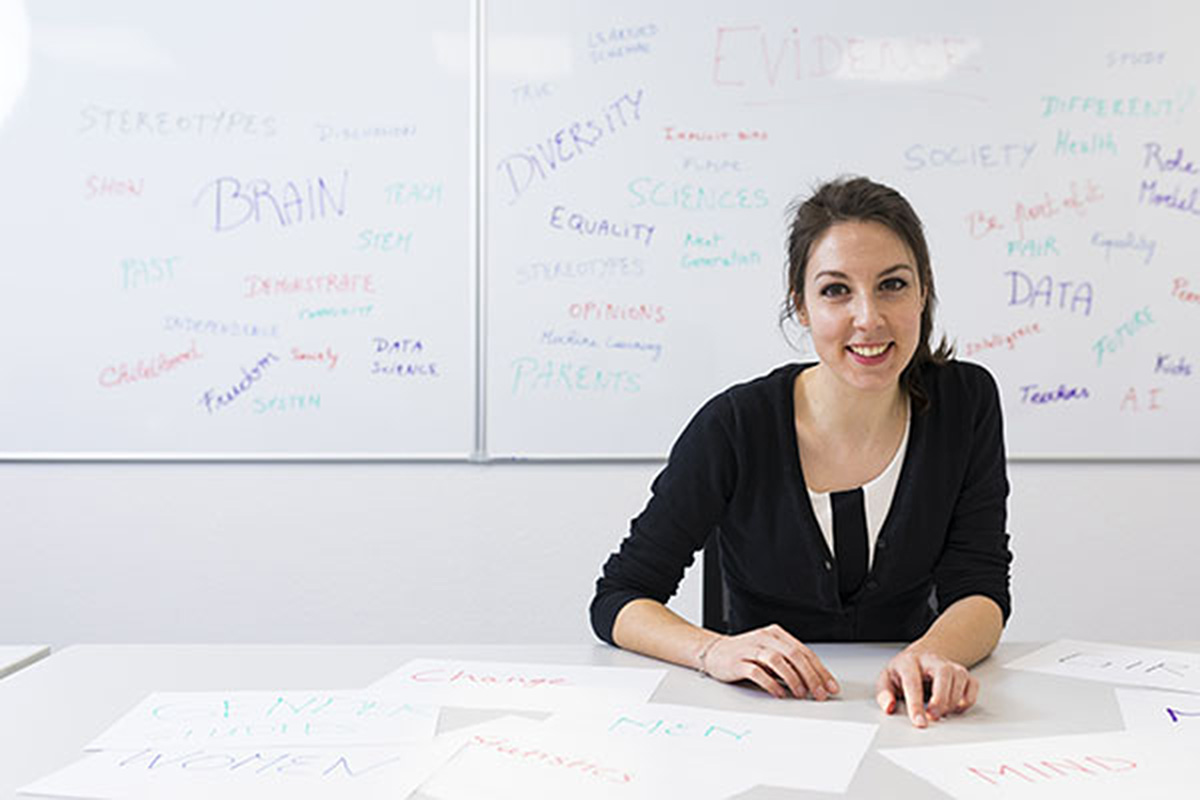 STEREOTYPES
DISCUSSION
SHOW
BRAIN
TEACH
STEM
PAST
DEMONSTRATE
COMMUNITY
INDEPENDENCE
Childhood
Society
DATA
SCIENCE
Freedom
SYSTEM
LEARNED
SCHEMAS
EViDENCE
STUDY
TRUE
DiVERSiTY
IMPLICIT BIAS
FUTURE
DIFFERENT?
SOCIETY
Health
Role
Models
SCIENCES
EQUALITY
Next
Generation
Be part of it
FAIR
Equality
STEREOTYPES
DATA
OPINIONS
FUTURE
Machine Learning
Intelligence
PARENTS
Kids
Teachers
A.I
Change
GENDER
STUDIES
MEN
WOMEN
Statistics
MIND